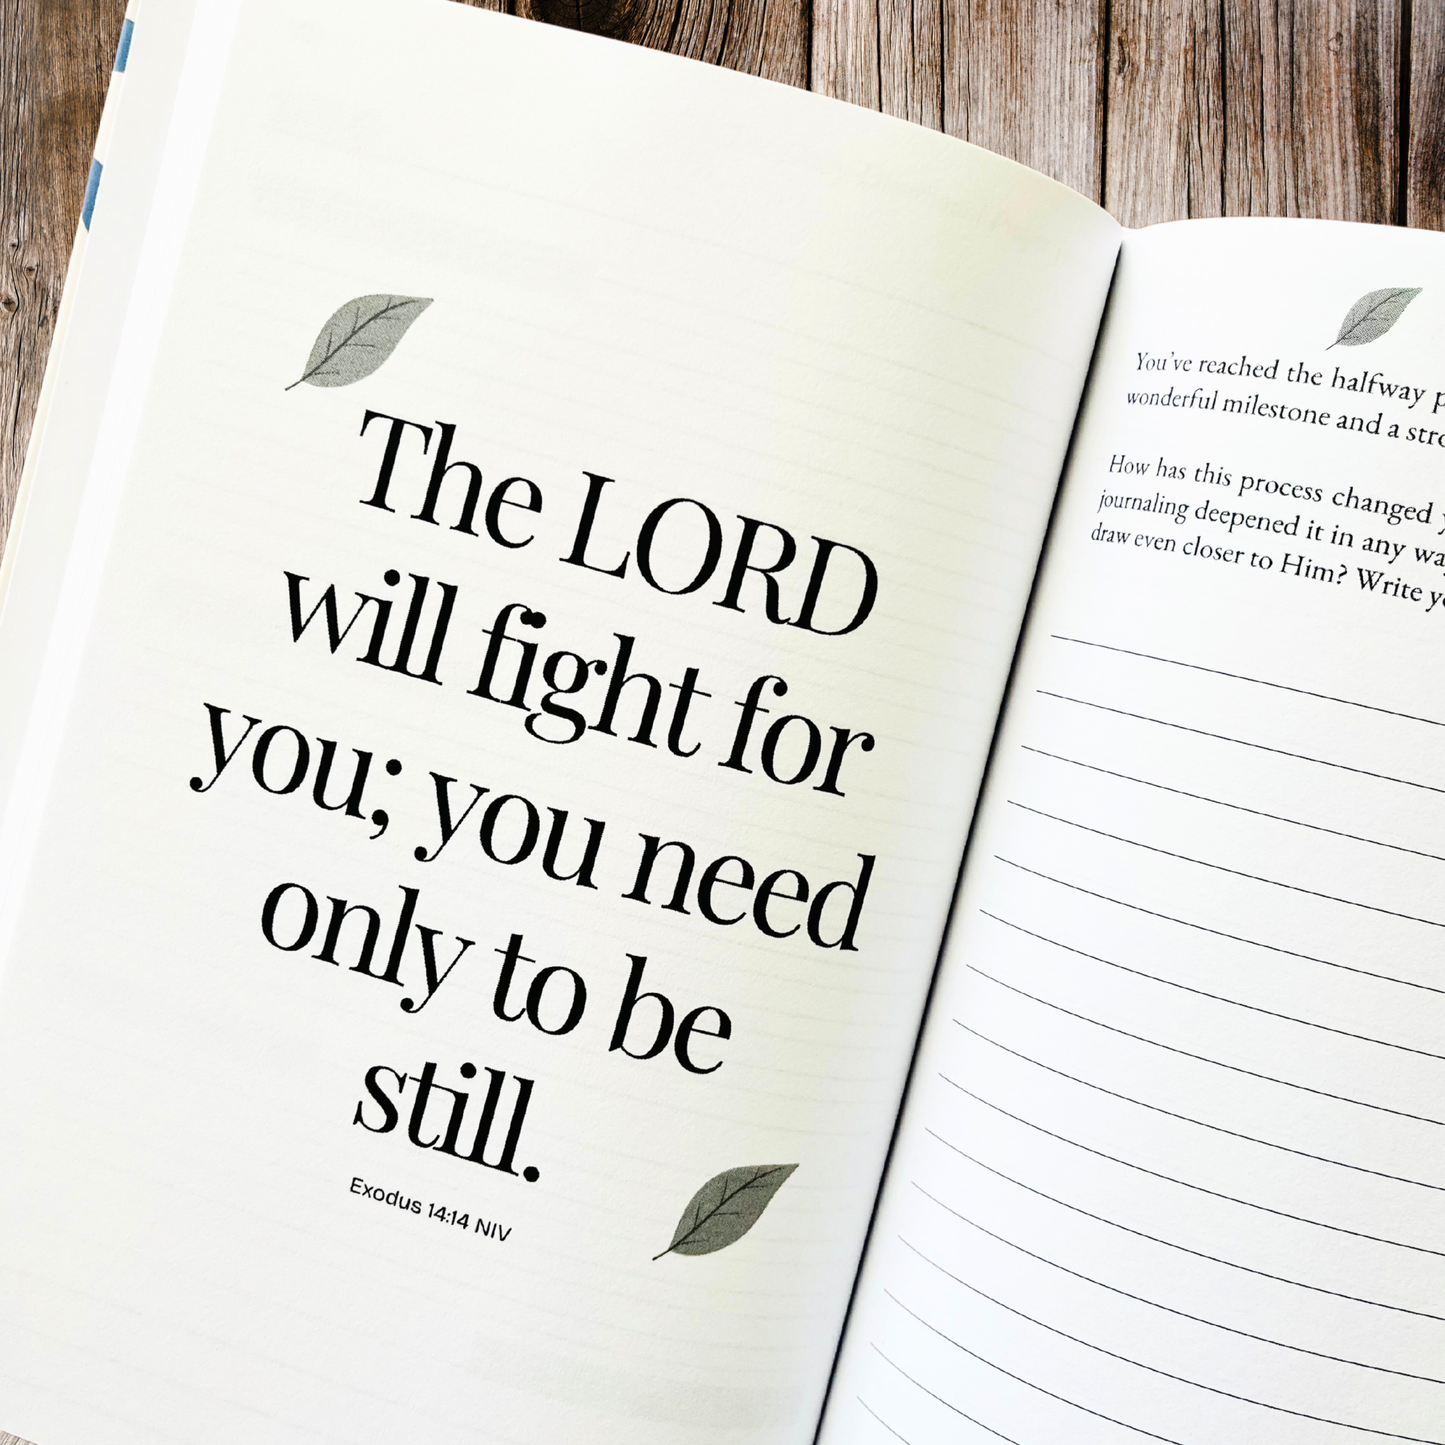 The LORD
will fight for
you; you need
only to be
still.
Exodus 14:14 NIV
You've reached the halfway
wonderful milestone and a
How has this process changed
journaling deepened it in any
draw even closer to Him? Write